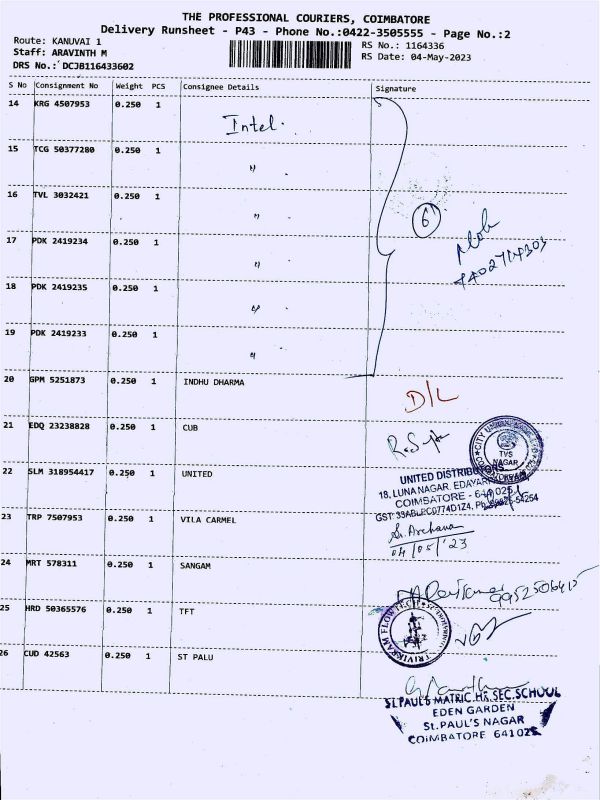 THE PROFESSIONAL COURIERS, COIMBATORE
Delivery Runsheet - P43 - Phone No.:0422-3505555 - Page No.:2
Route: KANUVAI 1
Staff: ARAVINTH M
DRS No.: DCJB116433602
RS No.: 1164336
RS Date: 04-May-2023
S No Consignment No Weight PCS Consignee Details Signature
14 KRG 4507953 0.250 1 Intel.
15 TCG 50377280 0.250 1 "
16 TVL 3032421 0.250 1 "
6
17 PDK 2419234 0.250 1 "
18 PDK 2419235 0.250 1 "
19 PDK 2419233 0.250 1 "
20 GPM 5251873 0.250 1 INDHU DHARMA D/L
21 EDQ 23238828 0.250 1 CUB
TVS
NAGAR
22 SLM 318954417 0.250 1 UNITED
UNITED DISTRIBUTORS
18, LUNA NAGAR, EDAYARPALAYAM,
COIMBATORE - 641025
23 TRP 7507953 0.250 1 VILA CARMEL Sr. Archana
04/05/'23
24 MRT 578311 0.250 1 SANGAM
25 HRD 50365576 0.250 1 TFT
TRIVIKRAM FLOWTECH
26 CUD 42563 0.250 1 ST PALU
St.PAUL'S MATRIC.HR.SEC.SCHOOL
EDEN GARDEN
St.PAUL'S NAGAR
COIMBATORE 641025